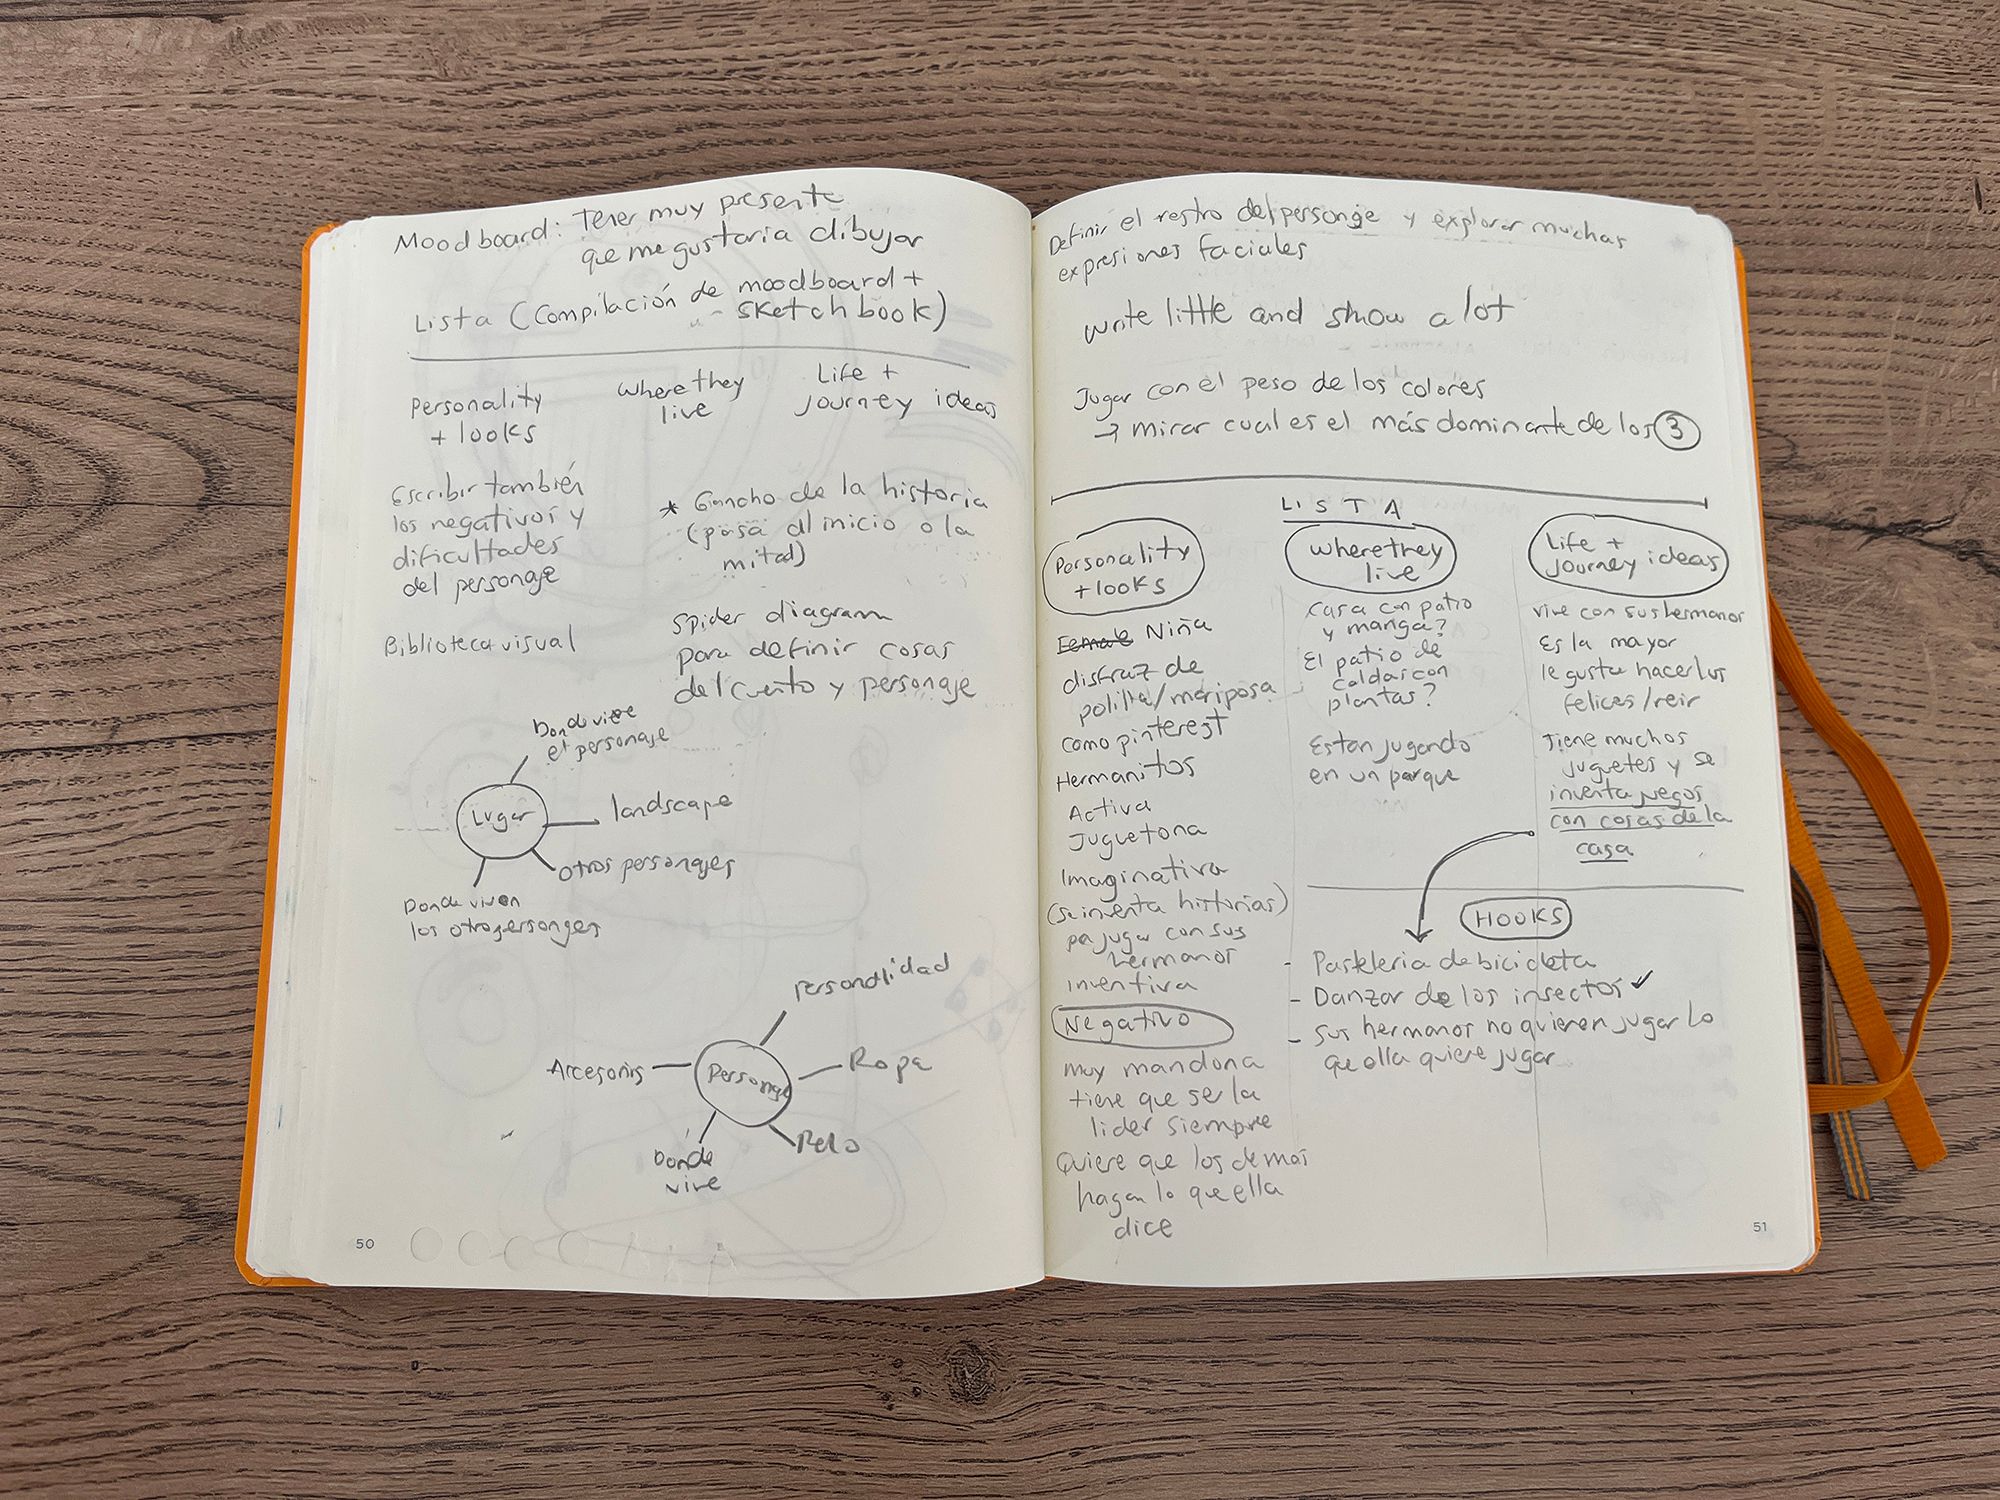 Moodboard: Tener muy presente
que me gustaria dibujar
Lista (Compilación de moodboard +
sketchbook)
Personality
+ looks
Where they
live
Life +
journey ideas
Escribir también
los negativos y
dificultades
del personaje
* Gancho de la historia
(pasa al inicio o la
mitad)
Biblioteca visual
Spider diagram
para definir cosas
del cuento y personaje
Donde vive
el personaje
Lugar
landscape
otros personajes
Donde viven
los otros personajes
Personalidad
Accesorios
Personaje
Ropa
Pelo
Donde
vive
50
Definir el rostro del personaje y explorar muchas
expresiones faciales
write little and show a lot
Jugar con el peso de los colores
→ mirar cual es el más dominante de los 3
LISTA
Personality
+ looks
Where they
live
Life +
journey ideas
Female Niña
disfraz de
polilla/mariposa
como pinterest
Hermanitos
Activa
Juguetona
Imaginativa
(se inventa historias)
pa jugar con sus
hermanos
inventiva
Negativo
muy mandona
tiene que ser la
lider siempre
Quiere que los demas
hagan lo que ella
dice
casa con patio
y manga?
El patio de
caldas con
plantas?
Estan jugando
en un parque
vive con sus hermanos
Es la mayor
le gusta hacerlos
felices/reir
Tiene muchos
juguetes y se
inventa juegos
con cosas de la
casa
HOOKS
- Pasteleria de bicicleta
- Danzar de los insectos ✓
- sus hermanos no quieren jugar lo
que ella quiere jugar
51